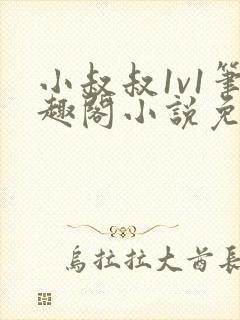 小叔叔1v1筆
趣閣小說免
烏拉拉大酋長